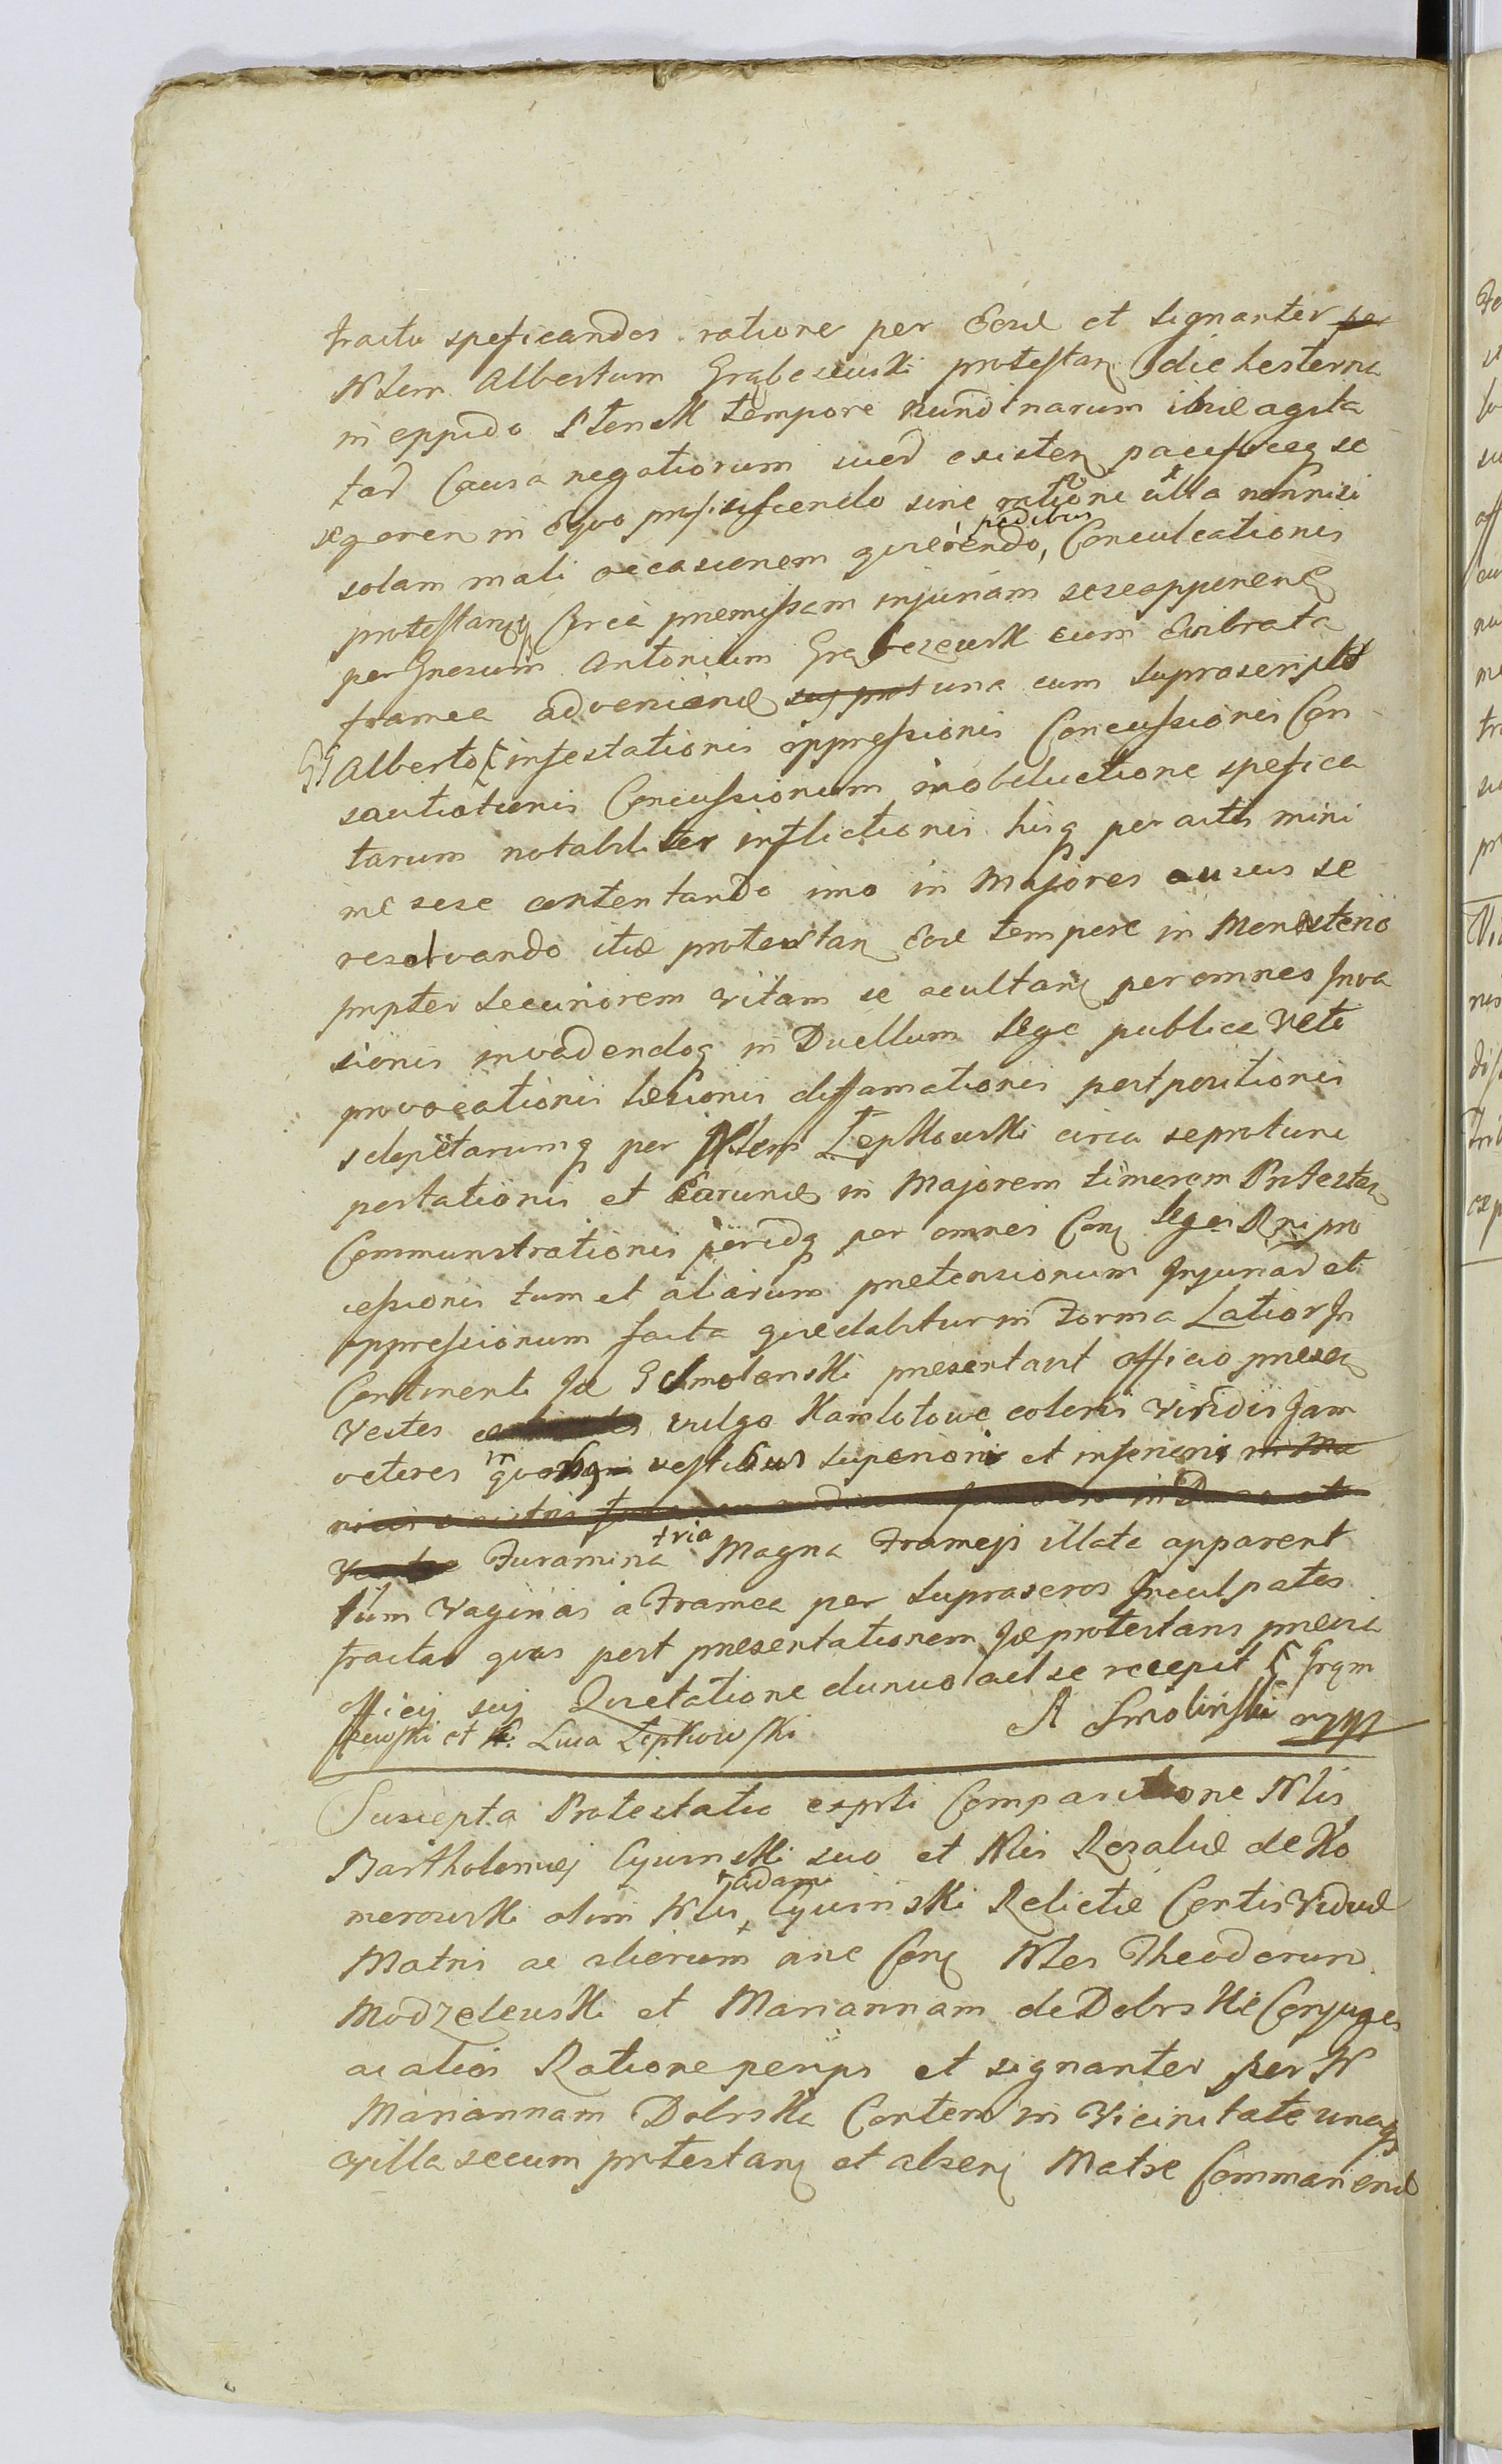 tractu speficandos ratione per Eosd et signanter per
Nlem Albertum Grąbczewski protestan die hesterna
in oppido Stensk tempore nundinarum ibid agita
tar Causa negotiorum suor existen pacificeq se
se geren in Equo proficiscendo sine ratione ulla nonnisi
solam mali occasionem quærendo, pedibus Conculcationis
protestan Circa premissam injuriam sese opponen
per Gnesum Antonium Grąbczewski cum Evibrata
framea advenien una cum suprascripto
Alberto infestationis oppressionis Concussionis Con
sautiationis Concussionum in obductione spefica
tarum notabiliter inflictionis hisq peractis mini
me sese contentando imo in Majores ausus se
resolvando itid protestan Eod tempore in Monasterio
propter securiorem vitam se ocultan per omnes Inva
sionis invadendoq in Duellum lege publica veti
provocationis læsionis diffamationis postpositionis
sclopetarumq per Nlem Łepkowski circa se protunc
portationis et Earund in Majorem timorem Protestan
Communstrationis peridq per omnes Con leges Rni pro
cessionis tum et aliarum pretensionum Injuriar et
oppressionum facta quæ dabitur in Forma Latiori In
Continenti Id G Smolenski presentavit officio presen
Vestes vulgo Kamlotowe coloris viridis Jam
veteres in quibq vestibus superiori et inferiori in Ma
Furamina tria Magna Frameis illata apparent
tum vaginas a Framea per supraseros Inculpatos
fractas quas post presentationem Id protestans previa
officij sui Quietatione denuo ad se recepit
czewski et N. Luca Łepkowski A Smolinski mpp
Suscepta Protestatio expti Comparitione Nlis
Bartholomej Cywinski suo et Nlis Rozaliæ de Ko
morowski olim Nlis Adami Cywinski Relictæ Consortis Viduæ
Matris ac aliorum ne Con Nles Theodorum
Modzelewski et Mariannam de Dobrskie Conjuges
ac alios Ratione per ipsos et signanter per N
Mariannam Dobrska Consortem in Vicinitate unaq
villa secum protestan et absen Matre Commanen